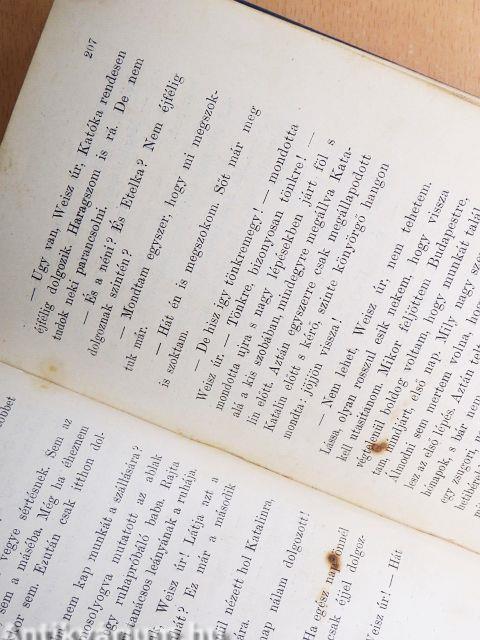 207
— Ugy van, Weisz úr, Katóka rendesen
éjfélig dolgozik. Haragszom is rá. De nem
tudok neki parancsolni.
— És a néni? És Etelka? Nem éjfélig
dolgoznak szintén?
— Mondtam egyszer, hogy mi megszok-
tuk már.
— Hát én is megszokom. Sőt már meg
is szoktam.
— De hisz így tönkremegy! — mondotta
Weisz úr. — Tönkre, bizonyosan tönkre! —
mondotta ujra s nagy lépésekben járt föl s
alá a kis szobában, mindegyre megállva Kata-
lin előtt. Aztán egyszerre csak megállapodott
Katalin előtt s kérő, szinte könyörgő hangon
mondta: jöjjön vissza!
— Nem lehet, Weisz úr, nem tehetem.
Lássa, olyan rosszul esik nekem, hogy vissza
kell utasítanom. Mikor feljöttem Budapestre,
végtelenül boldog voltam, hogy munkát talál-
tam, mindjárt, első nap. Mily nagy
Álmodni sem mertem volna, hogy
lesz az első lépés. Aztán
hónapok, s bár nem
egy zsugori,
többet
vegye sértésnek. Sem az
sem a másóba. Még ha éheznem
sor sem. Ezután csak itthon dol-
nem kap munkát a szállására?
osolyogva mutatott az ablak
ruhápróbáló baba. Rajta
tanácsos leányának a ruhája.
Weisz úr! Látja azt a
Ez már a második
nézett hol Katalinra,
nap nálam dolgozott!
Ha egész nap önnél
csak éjjel dolgoz-
úr! — Hát
Antikvarium.hu